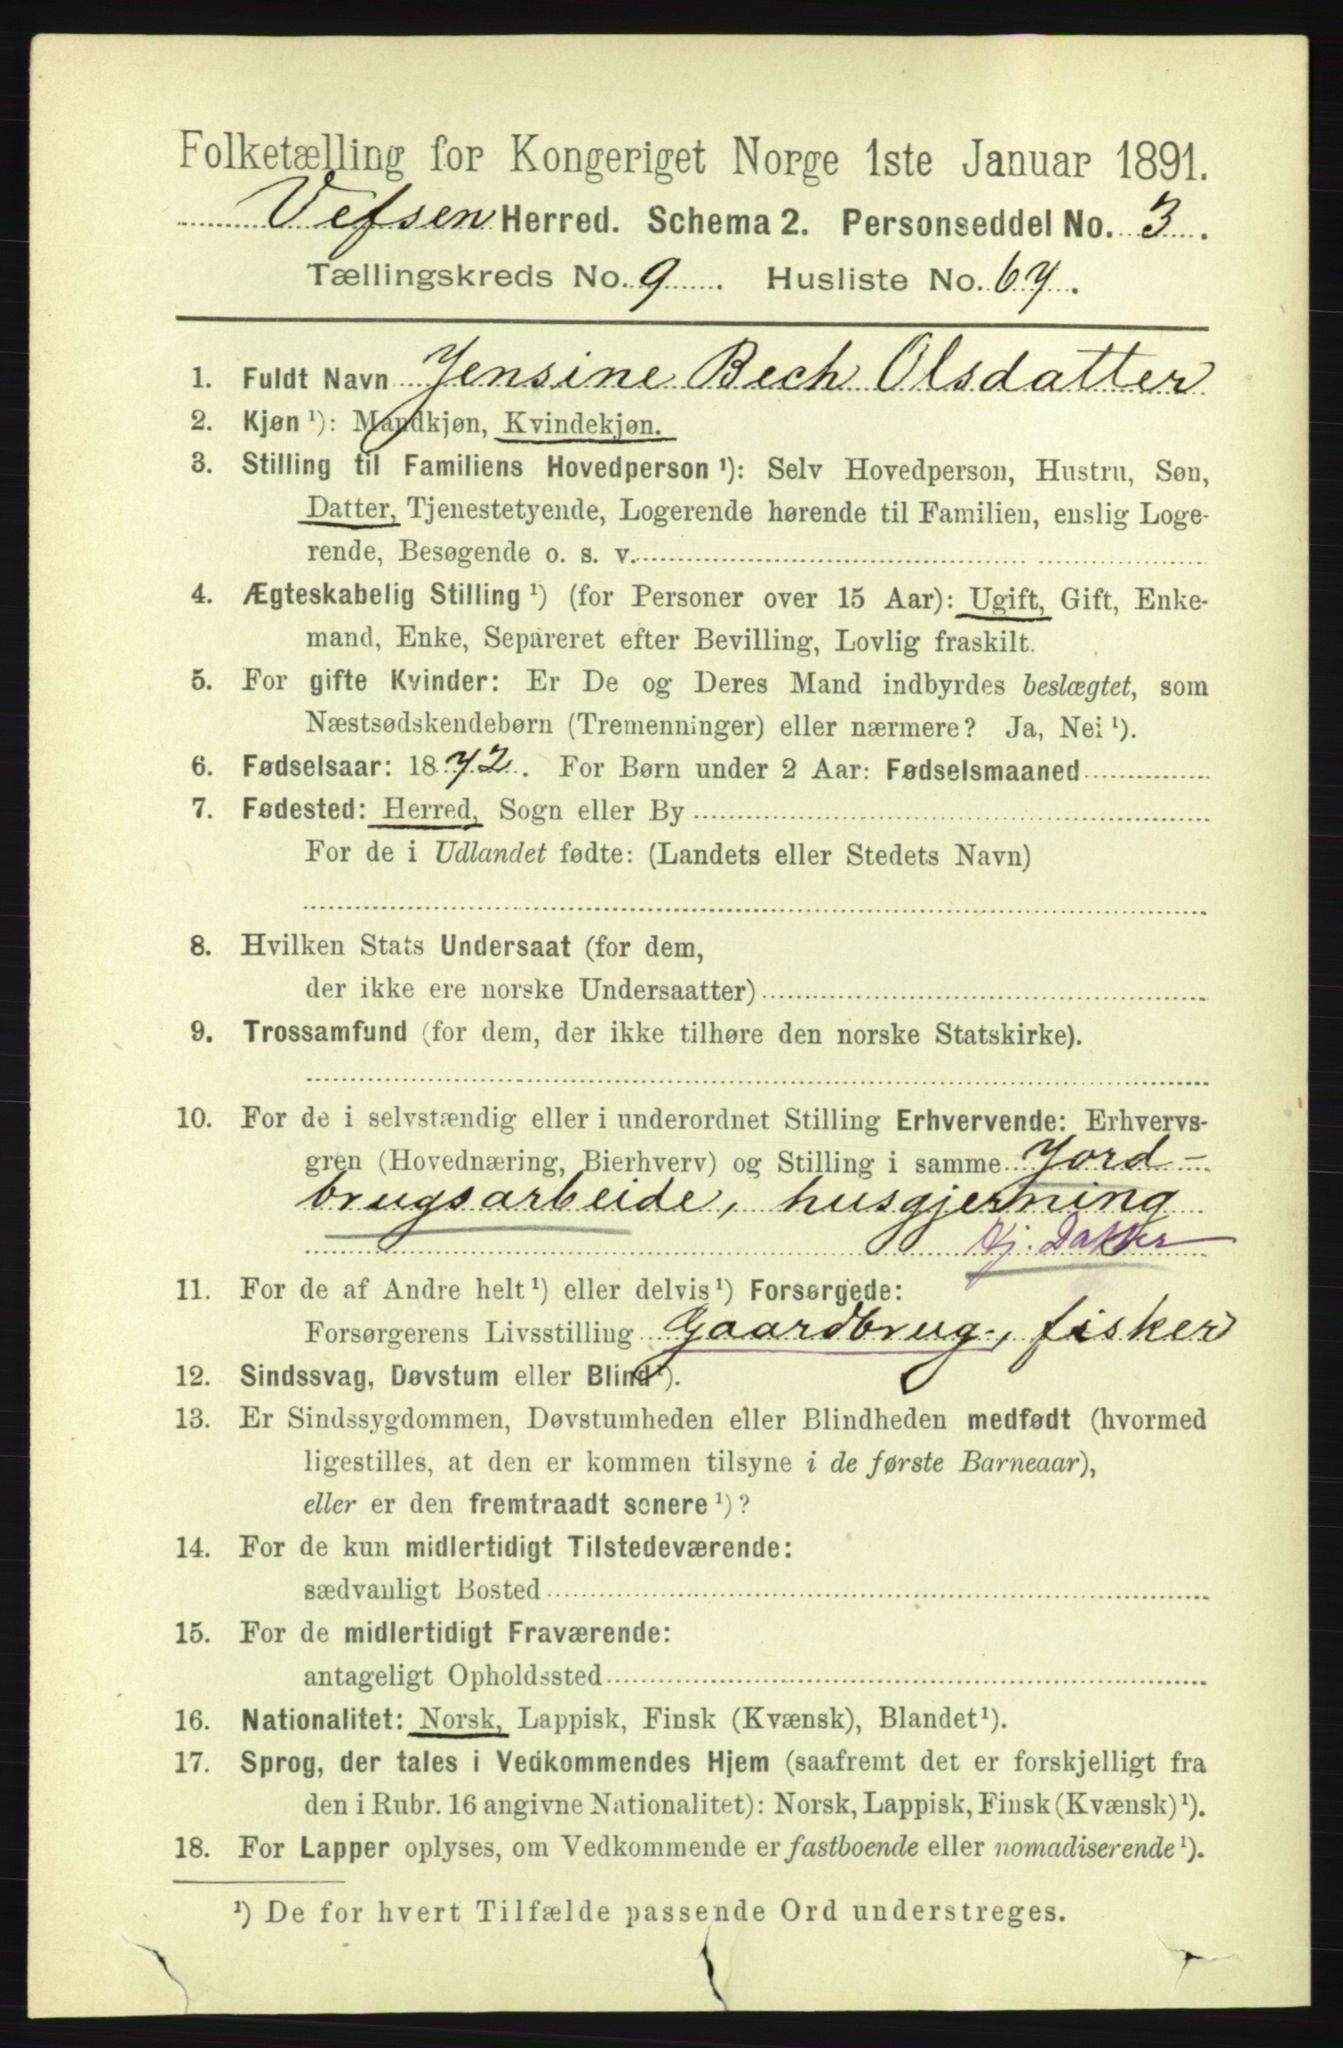 Folketælling for Kongeriget Norge 1ste Januar 1891.
Vefsen Herred. Schema 2. Personseddel No. 3.
Tællingskreds No. 9. Husliste No. 67.
1. Fuldt Navn Jensine Bech Olsdatter
2. Kjøn ¹): Mandkjøn, Kvindekjøn.
3. Stilling til Familiens Hovedperson ¹): Selv Hovedperson, Hustru, Søn,
Datter, Tjenestetyende, Logerende hørende til Familien, enslig Loge-
rende, Besøgende o. s. v.
4. Ægteskabelig Stilling ¹) (for Personer over 15 Aar): Ugift, Gift, Enke-
mand, Enke, Separeret efter Bevilling, Lovlig fraskilt.
5. For gifte Kvinder: Er De og Deres Mand indbyrdes beslægtet, som
Næstsødskendebørn (Tremenninger) eller nærmere? Ja, Nei ¹).
6. Fødselsaar: 1872. For Børn under 2 Aar: Fødselsmaaned
7. Fødested: Herred, Sogn eller By
For de i Udlandet fødte: (Landets eller Stedets Navn)
8. Hvilken Stats Undersaat (for dem,
der ikke ere norske Undersaatter)
9. Trossamfund (for dem, der ikke tilhøre den norske Statskirke).
10. For de i selvstændig eller i underordnet Stilling Erhvervende: Erhvervs-
gren (Hovednæring, Bierhverv) og Stilling i samme Jord-
brugsarbeide, husgjerning
11. For de af Andre helt ¹) eller delvis ¹) Forsørgede:
Forsørgerens Livsstilling Gaardbrug, fisker
12. Sindssvag, Døvstum eller Blind ¹).
13. Er Sindssygdommen, Døvstumheden eller Blindheden medfødt (hvormed
ligestilles, at den er kommen tilsyne i de første Barneaar),
eller er den fremtraadt senere ¹)?
14. For de kun midlertidigt Tilstedeværende:
sædvanligt Bosted
15. For de midlertidigt Fraværende:
antageligt Opholdssted
16. Nationalitet: Norsk, Lappisk, Finsk (Kvænsk), Blandet ¹).
17. Sprog, der tales i Vedkommendes Hjem (saafremt det er forskjelligt fra
den i Rubr. 16 angivne Nationalitet): Norsk, Lappisk, Finsk (Kvænsk) ¹).
18. For Lapper oplyses, om Vedkommende er fastboende eller nomadiserende ¹).
¹) De for hvert Tilfælde passende Ord understreges.